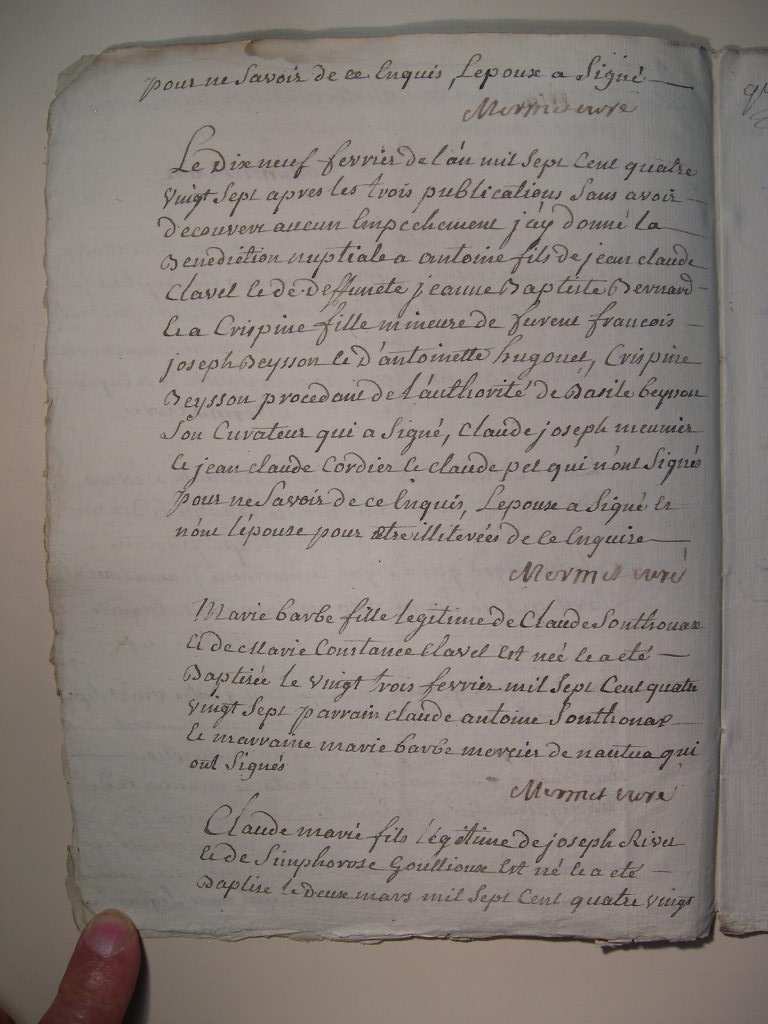 pour ne Savoir de ce Enquis, L'epoux a Signé
Mermet curé
Le Dix neuf fevrier de l'an mil Sept Cent quatre
vingt Sept apres les trois publications Sans avoir
decouvert aucun Empechement j'ay donné la
Benediction nuptiale a antoine fils de jean claude
Clavel et de Deffuncte jeanne Baptiste Bernard
et a Crispine fille mineure de furent francois
joseph Beysson et D'antoinette hugonet, Crispine
Beysson procedant de l'authorité de Basile beysson
Son Curateur qui a Signé, Claude joseph meunier
et jean claude Cordier et claude pet qui n'ont Signés
pour ne Savoir de ce Enquis, L'epoux a Signé et
non l'épouse pour etre illiterées de ce Enquise
Mermet curé
Marie barbe fille legitime de Claude Sonthonax
et de Marie Constance Clavel est née et a eté
Baptisée le vingt trois fevrier mil Sept Cent quatre
vingt Sept parrain claude antoine Sonthonax
et marraine marie barbe mercier de nantua qui
ont Signés
Mermet curé
Claude marie fils légitime de joseph Rivet
et de Simphorose Goullioux est né et a eté
Baptisé le Deux mars mil Sept Cent quatre vingt